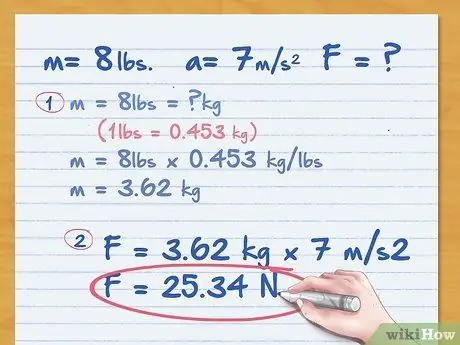 m= 8lbs. a= 7m/s² F = ?
1 m = 8lbs = ?kg
(1lbs = 0.453 kg)
m = 8lbs x 0.453 kg/lbs
m = 3.62 kg
2 F = 3.62 kg x 7 m/s2
F = 25.34 N
wikiHow